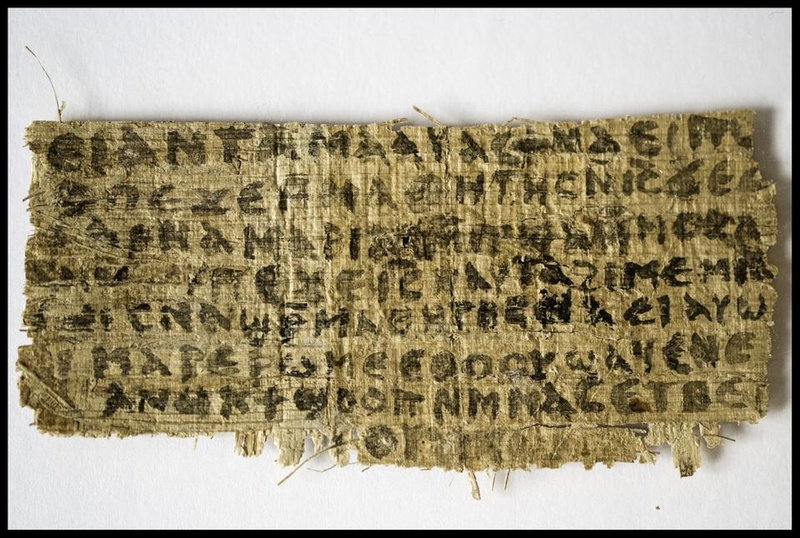 ⲉⲓ ⲁⲛ ⲧⲁⲙⲁⲁⲩ ⲁⲥϯ ⲛⲁⲉⲓ ⲡⲱ
ⲥ ⲡⲉϫⲉ ⲙⲙⲁⲑⲏⲧⲏⲥ ⲛⲓⲥ ϫⲉ ⲥ
ⲁⲣⲛⲁ ⲙⲁⲣⲓⲁⲙ ⲙⲡϣⲁ ⲙⲙⲟⲥ ⲁ
ⲡⲉϫⲉ ⲓⲥ ⲛⲁⲩ ⲧⲁϩⲓⲙⲉ ⲙⲛ
ⲥⲛⲁϣⲣ ⲙⲁⲑⲏⲧⲏⲥ ⲛⲁⲉⲓ ⲁⲩⲱ
ⲓ ⲙⲁⲣⲉⲣⲱⲙⲉ ⲉⲑⲟⲟⲩ ϣⲁϥⲉ ⲛⲉ
ⲁⲛⲟⲕ ϯϣⲟⲟⲡ ⲛⲙⲙⲁⲥ ⲉⲧⲃⲉ